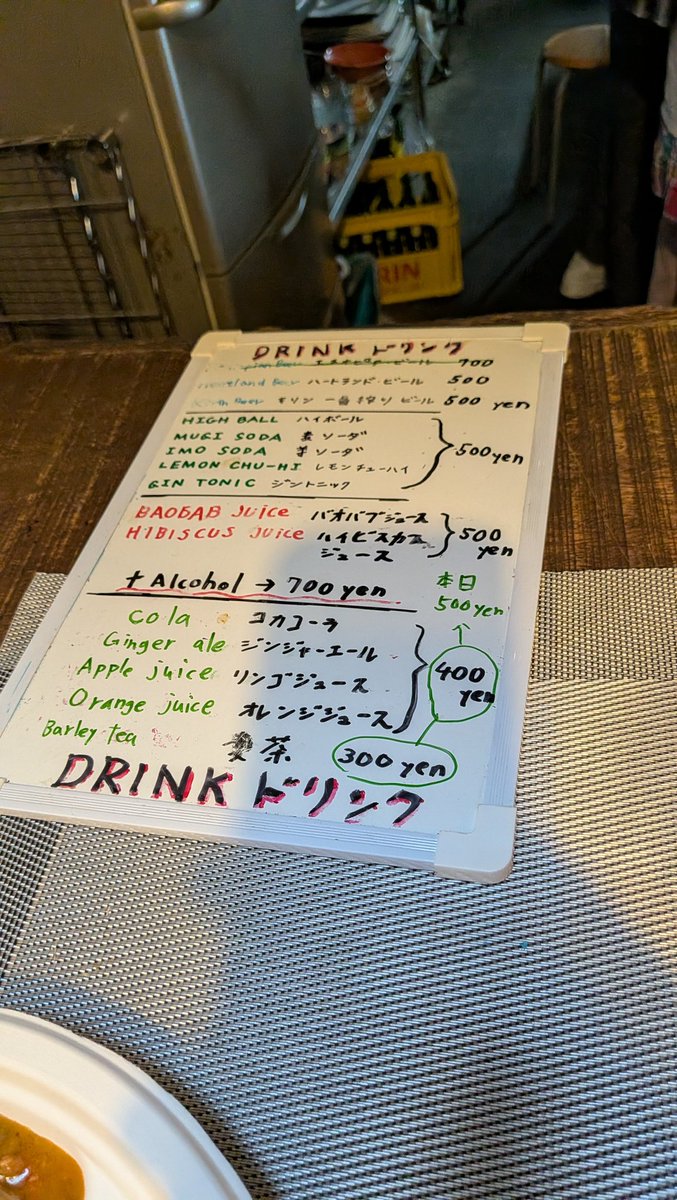 RIN
DRINK ドリンク
ビール 700
Beer ハートランド・ビール 500
Beer キリン 一番搾り ビール 500 yen
HIGH BALL ハイボール
MUGI SODA 麦 ソーダ
IMO SODA 芋 ソーダ
LEMON CHU-HI レモンチューハイ
GIN TONIC ジントニック
500 yen
BAOBAB Juice バオバブジュース
HIBISCUS Juice ハイビスカス
ジュース
500
yen
+ Alcohol → 700 yen
本日
500 yen
cola コカコーラ
Ginger ale ジンジャーエール
Apple juice リンゴジュース
Orange juice オレンジジュース
400
yen
Barley tea 麦茶
300 yen
DRINK ドリンク